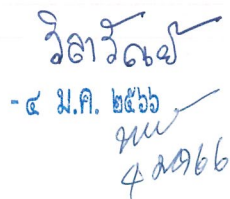 วิลาวัณย์
-๔ ม.ค. ๒๕๖๖
4 มค 66